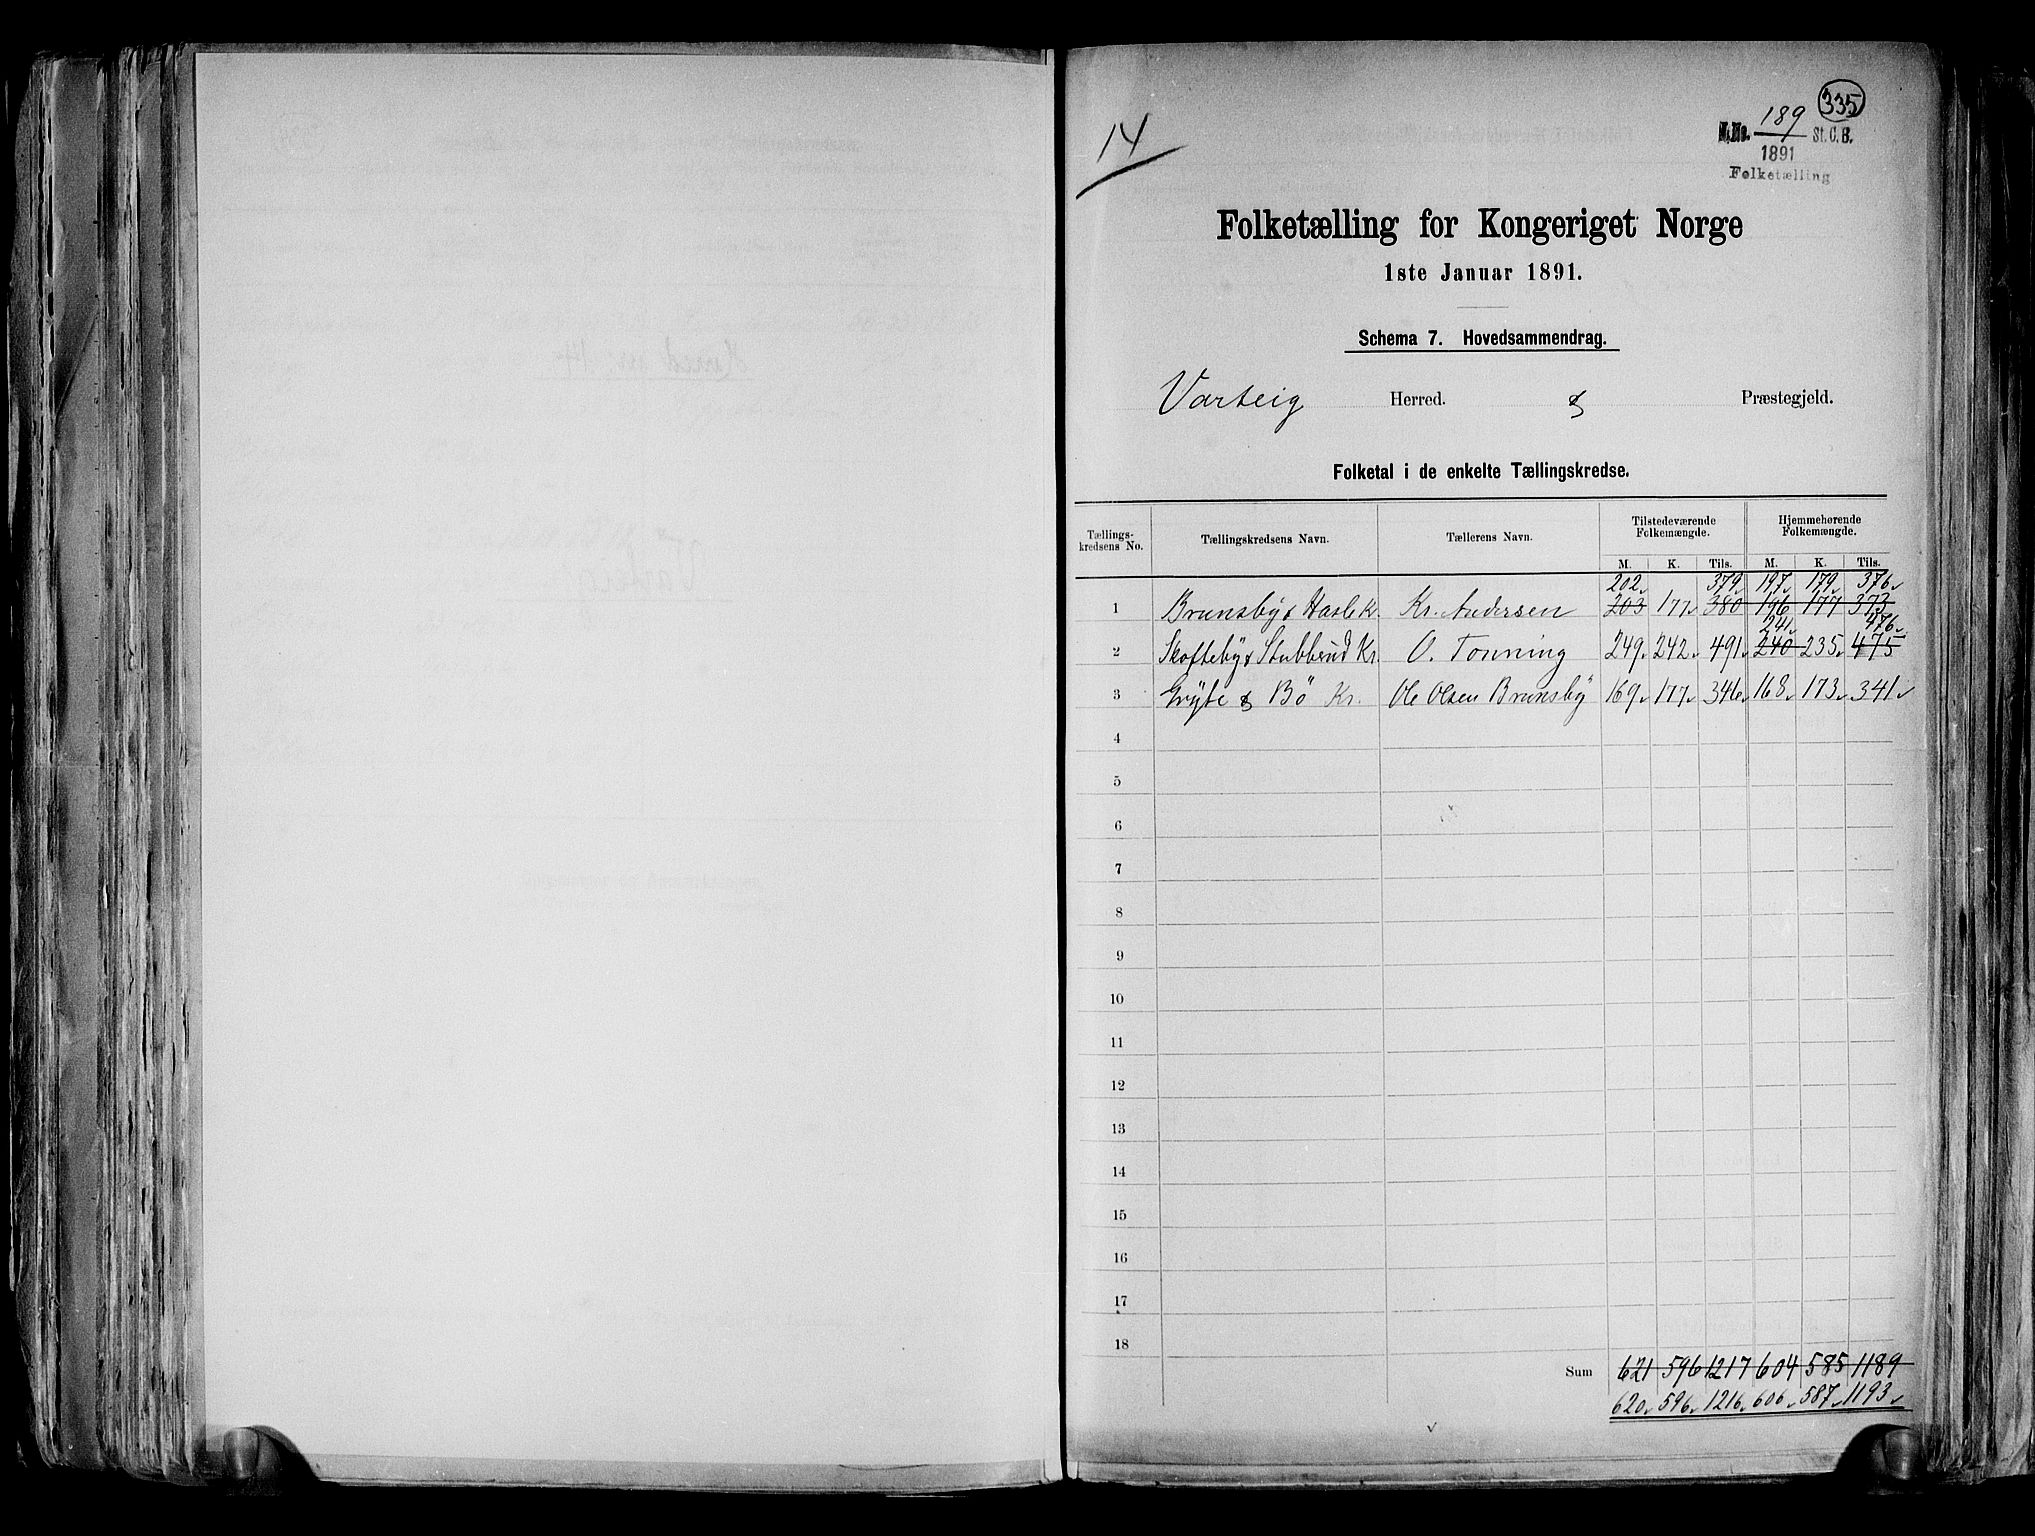 335
14
J.No. 189 St. C. B.
1891
Folketælling
Folketælling for Kongeriget Norge
1ste Januar 1891.
Schema 7. Hovedsammendrag.
Varteig Herred. Præstegjeld.
Folketal i de enkelte Tællingskredse.
Tællings-kredsens No. Tællingskredsens Navn. Tællerens Navn. Tilstedeværende Folkemængde. Hjemmehørende Folkemængde.
M. K. Tils. M. K. Tils.
202 379 197 179 376
1 Brunsby & Hasle Kr. Kr. Andersen 203 177 380 196 177 373
241 476
2 Skofteby & Stubberud Kr. O. Tonning 249 242 491 240 235 475
3 Gryte & Bö Kr. Ole Olsen Brunsby 169 177 346 168 173 341
4
5
6
7
8
9
10
11
12
13
14
15
16
17
18
Sum 621 596 1217 604 585 1189
620 596 1216 606 587 1193